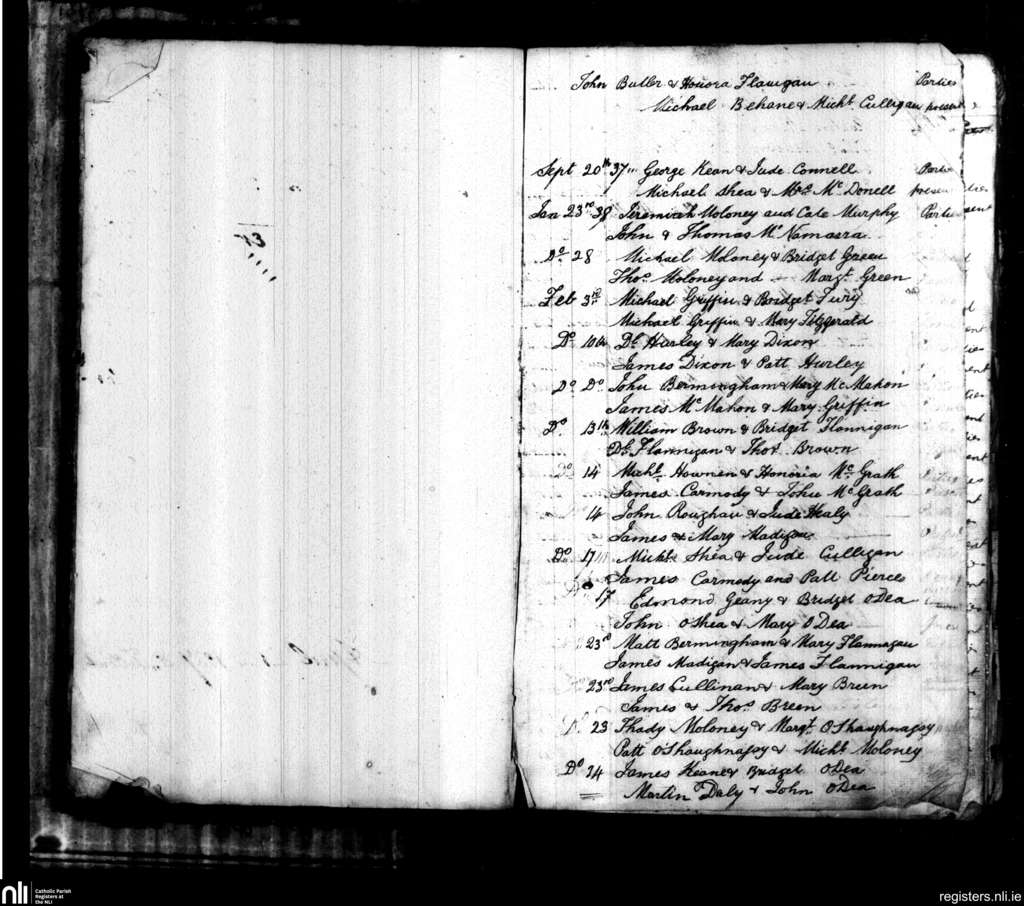 John Butler & Honora Flanigan Parties
Michael Behane & Michl. Culligan present
Sept 20th 37 " George Kean & Jude Connell Partie
Michael Shea & Mrs. Mc. Donell presen
Jan 23rd 38 Jeremiah Moloney and Cate Murphy Parties
John & Thomas Mc Namara
Do. 28 Michael Moloney & Bridget Green
Thos. Moloney and Margt. Green
Feb 3rd Michael Griffin & Bridget Fury
Michael Griffin & Mary Fitzgerald
Do. 10th Dl. Hurley & Mary Dixon
James Dixon & Patt Hurley
Do Do John Bermingham & Mary Mc Mahon
James Mc Mahon & Mary Griffin
Do. 13th William Brown & Bridget Flannigan
Dl. Flannigan & Thos. Brown
Do 14 Michl. & Honoria Mc. Grath
James Carmody & John Mc Grath
14 John Roughan & Jude Healy
James & Mary Madigan
Do. 17 Michl. Shea & Jude Culligan
James Carmody and Patt Pierce
Do 17 Edmond Geany & Bridget ODea
John OShea & Mary ODea
23rd Matt Bermingham & Mary Flannagan
James Madigan & James Flannigan
23rd James Cullinan & Mary Breen
James & Thos. Breen
D. 23 Thady Moloney & Margt. OShaughnassy
Patt OShaughnassy & Michl. Moloney
Do 24 James Keane & Bridget ODea
Martin Daly & John ODea
nli
Catholic Parish
Registers at
the NLI
registers.nli.ie